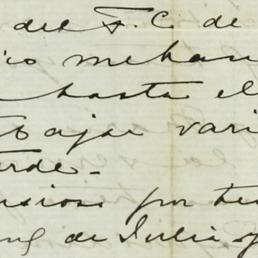 del F. C. de
ico mehan
hasta el
bajar vari
arde.
nsioso por te
ong de Julio y